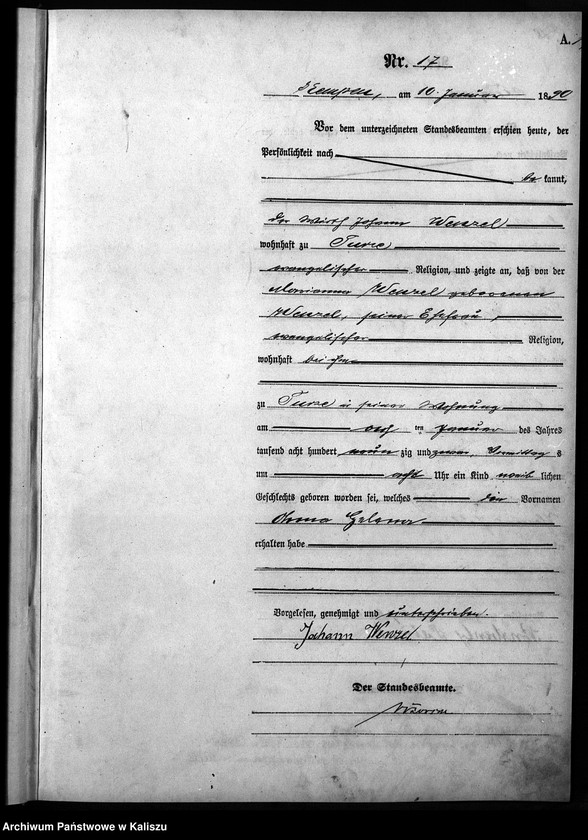 A.
Nr. 17
Kempen, am 10. Januar 1890
Vor dem unterzeichneten Standesbeamten erschien heute, der
Persönlichkeit nach
be kannt,
der Wirth Johann Wenzel
wohnhaft zu Turze
evangelischer Religion, und zeigte an, daß von der
Marianna Wenzel geborenen
Wenzel, seiner Ehefrau,
evangelischer Religion,
wohnhaft bei ihm
zu Turze in seiner Wohnung
am acht ten Januar des Jahres
tausend acht hundert neun zig und zwar Vormittag s
um acht Uhr ein Kind weib lichen
Geschlechts geboren worden sei, welches den Vornamen
Anna Helena
erhalten habe
Vorgelesen, genehmigt und unterschrieben.
Johann Wenzel
Der Standesbeamte.
Archiwum Państwowe w Kaliszu